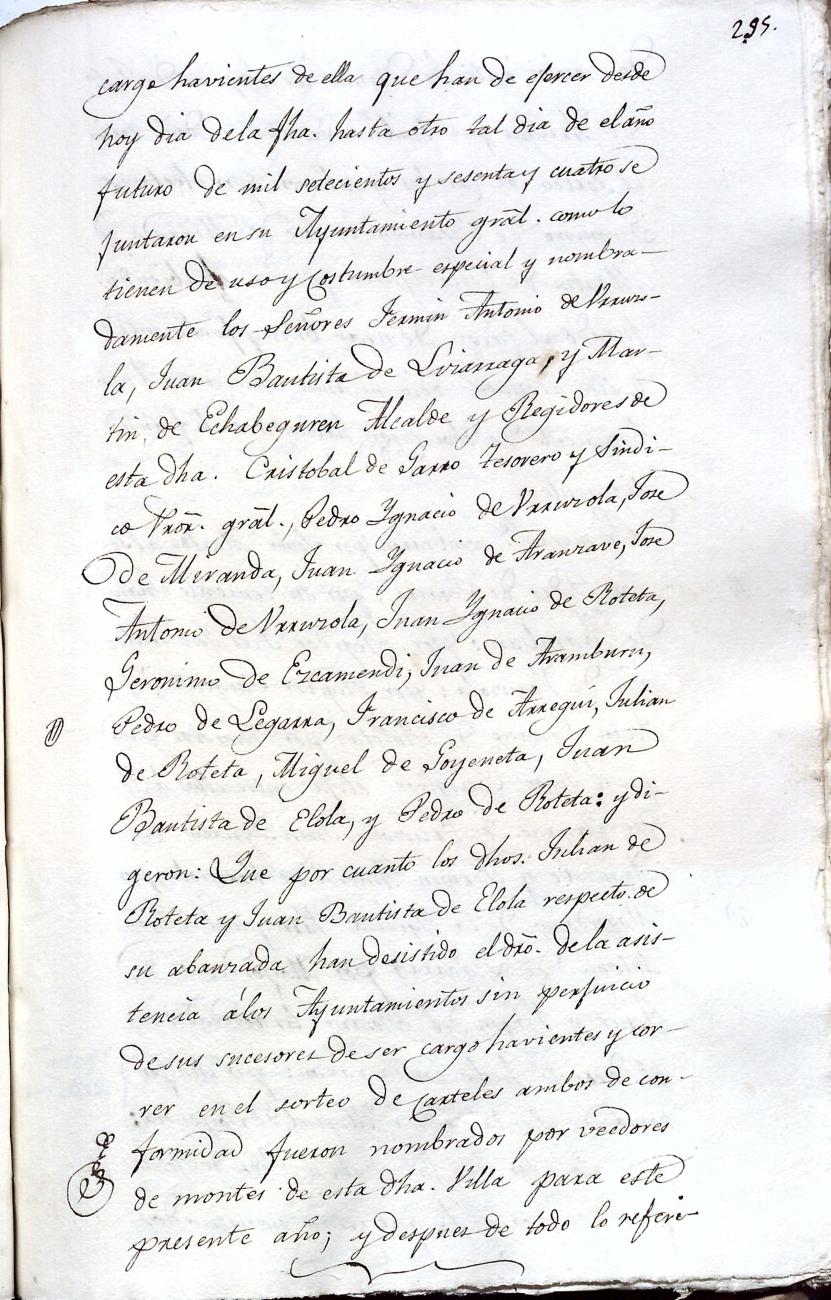 295.
cargo havientes de ella que han de ejercer desde
hoy dia dela fha. hasta otro tal dia de el año
futuro de mil setecientos y sesenta y cuatro se
juntaron en su Ayuntamiento grãl. como lo
tienen de uso y costumbre especial y nombra-
damente los Señores Fermin Antonio de Vrruzo-
la, Juan Bautista de Lviarraga, y Mar-
tin, de Echabeguren Alcalde y Regidores de
esta dha. Cristobal de Garro tesorero y Sindi-
co Pror. grãl., Pedro Ygnacio de Vrruzola, Jose
de Miranda, Juan Ygnacio de Aranzave, Jose
Antonio de Vrruzola, Juan Ygnacio de Roteta,
Geronimo de Ezcamendi, Juan de Aramburu,
Pedro de Legarra, Francisco de Arregui, Julian
de Roteta, Miguel de Goyeneta, Juan
Bautista de Elola, y Pedro de Roteta: y di-
geron: Que por cuanto los dhos. Julian de
Roteta y Juan Bautista de Elola respecto de
su abanzada han desistido el dro. de la asis-
tencia á los Ayuntamientos sin perjuicio
de sus sucesores de ser cargo havientes y cor-
rer en el sorteo de Carteles ambos de con-
formidad fueron nombrados por veedores
de montes de esta dha. Villa para este
presente año; y despues de todo lo referi-